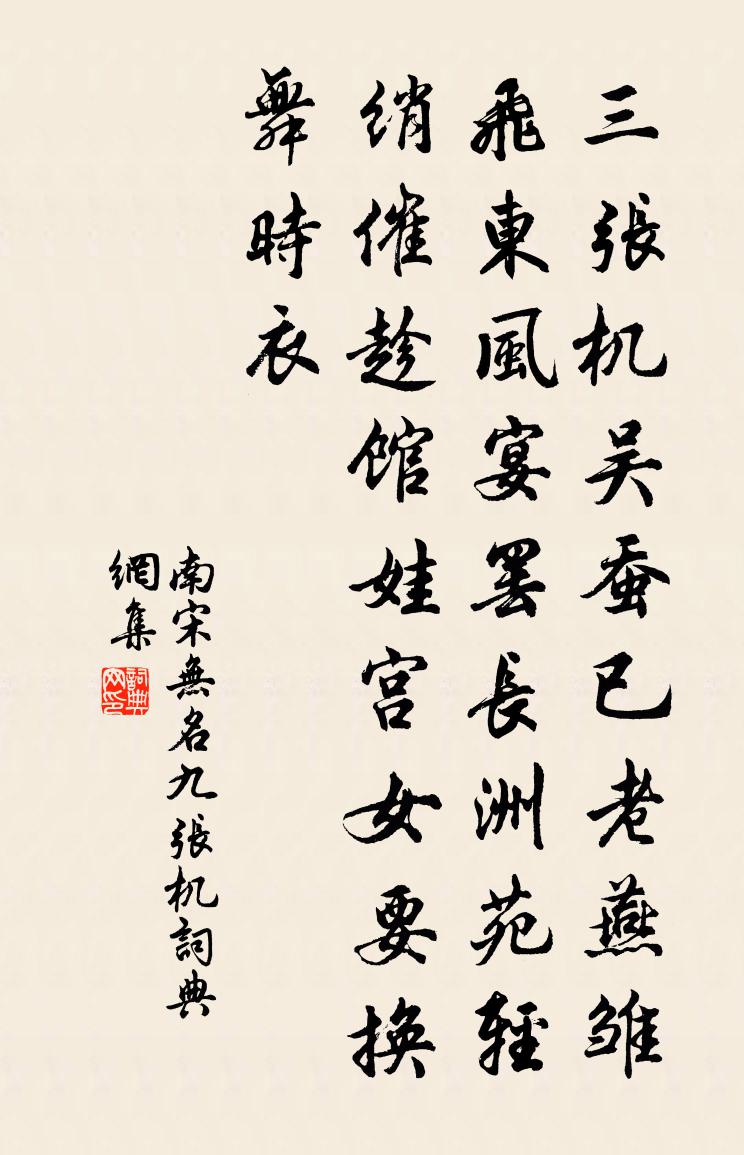 三張机吴蚕已老燕雏
飛東風宴罢長洲苑輕
绡催趁馆娃宫女要换
舞時衣
南宋無名九張机詞典
網集
詞典
网印